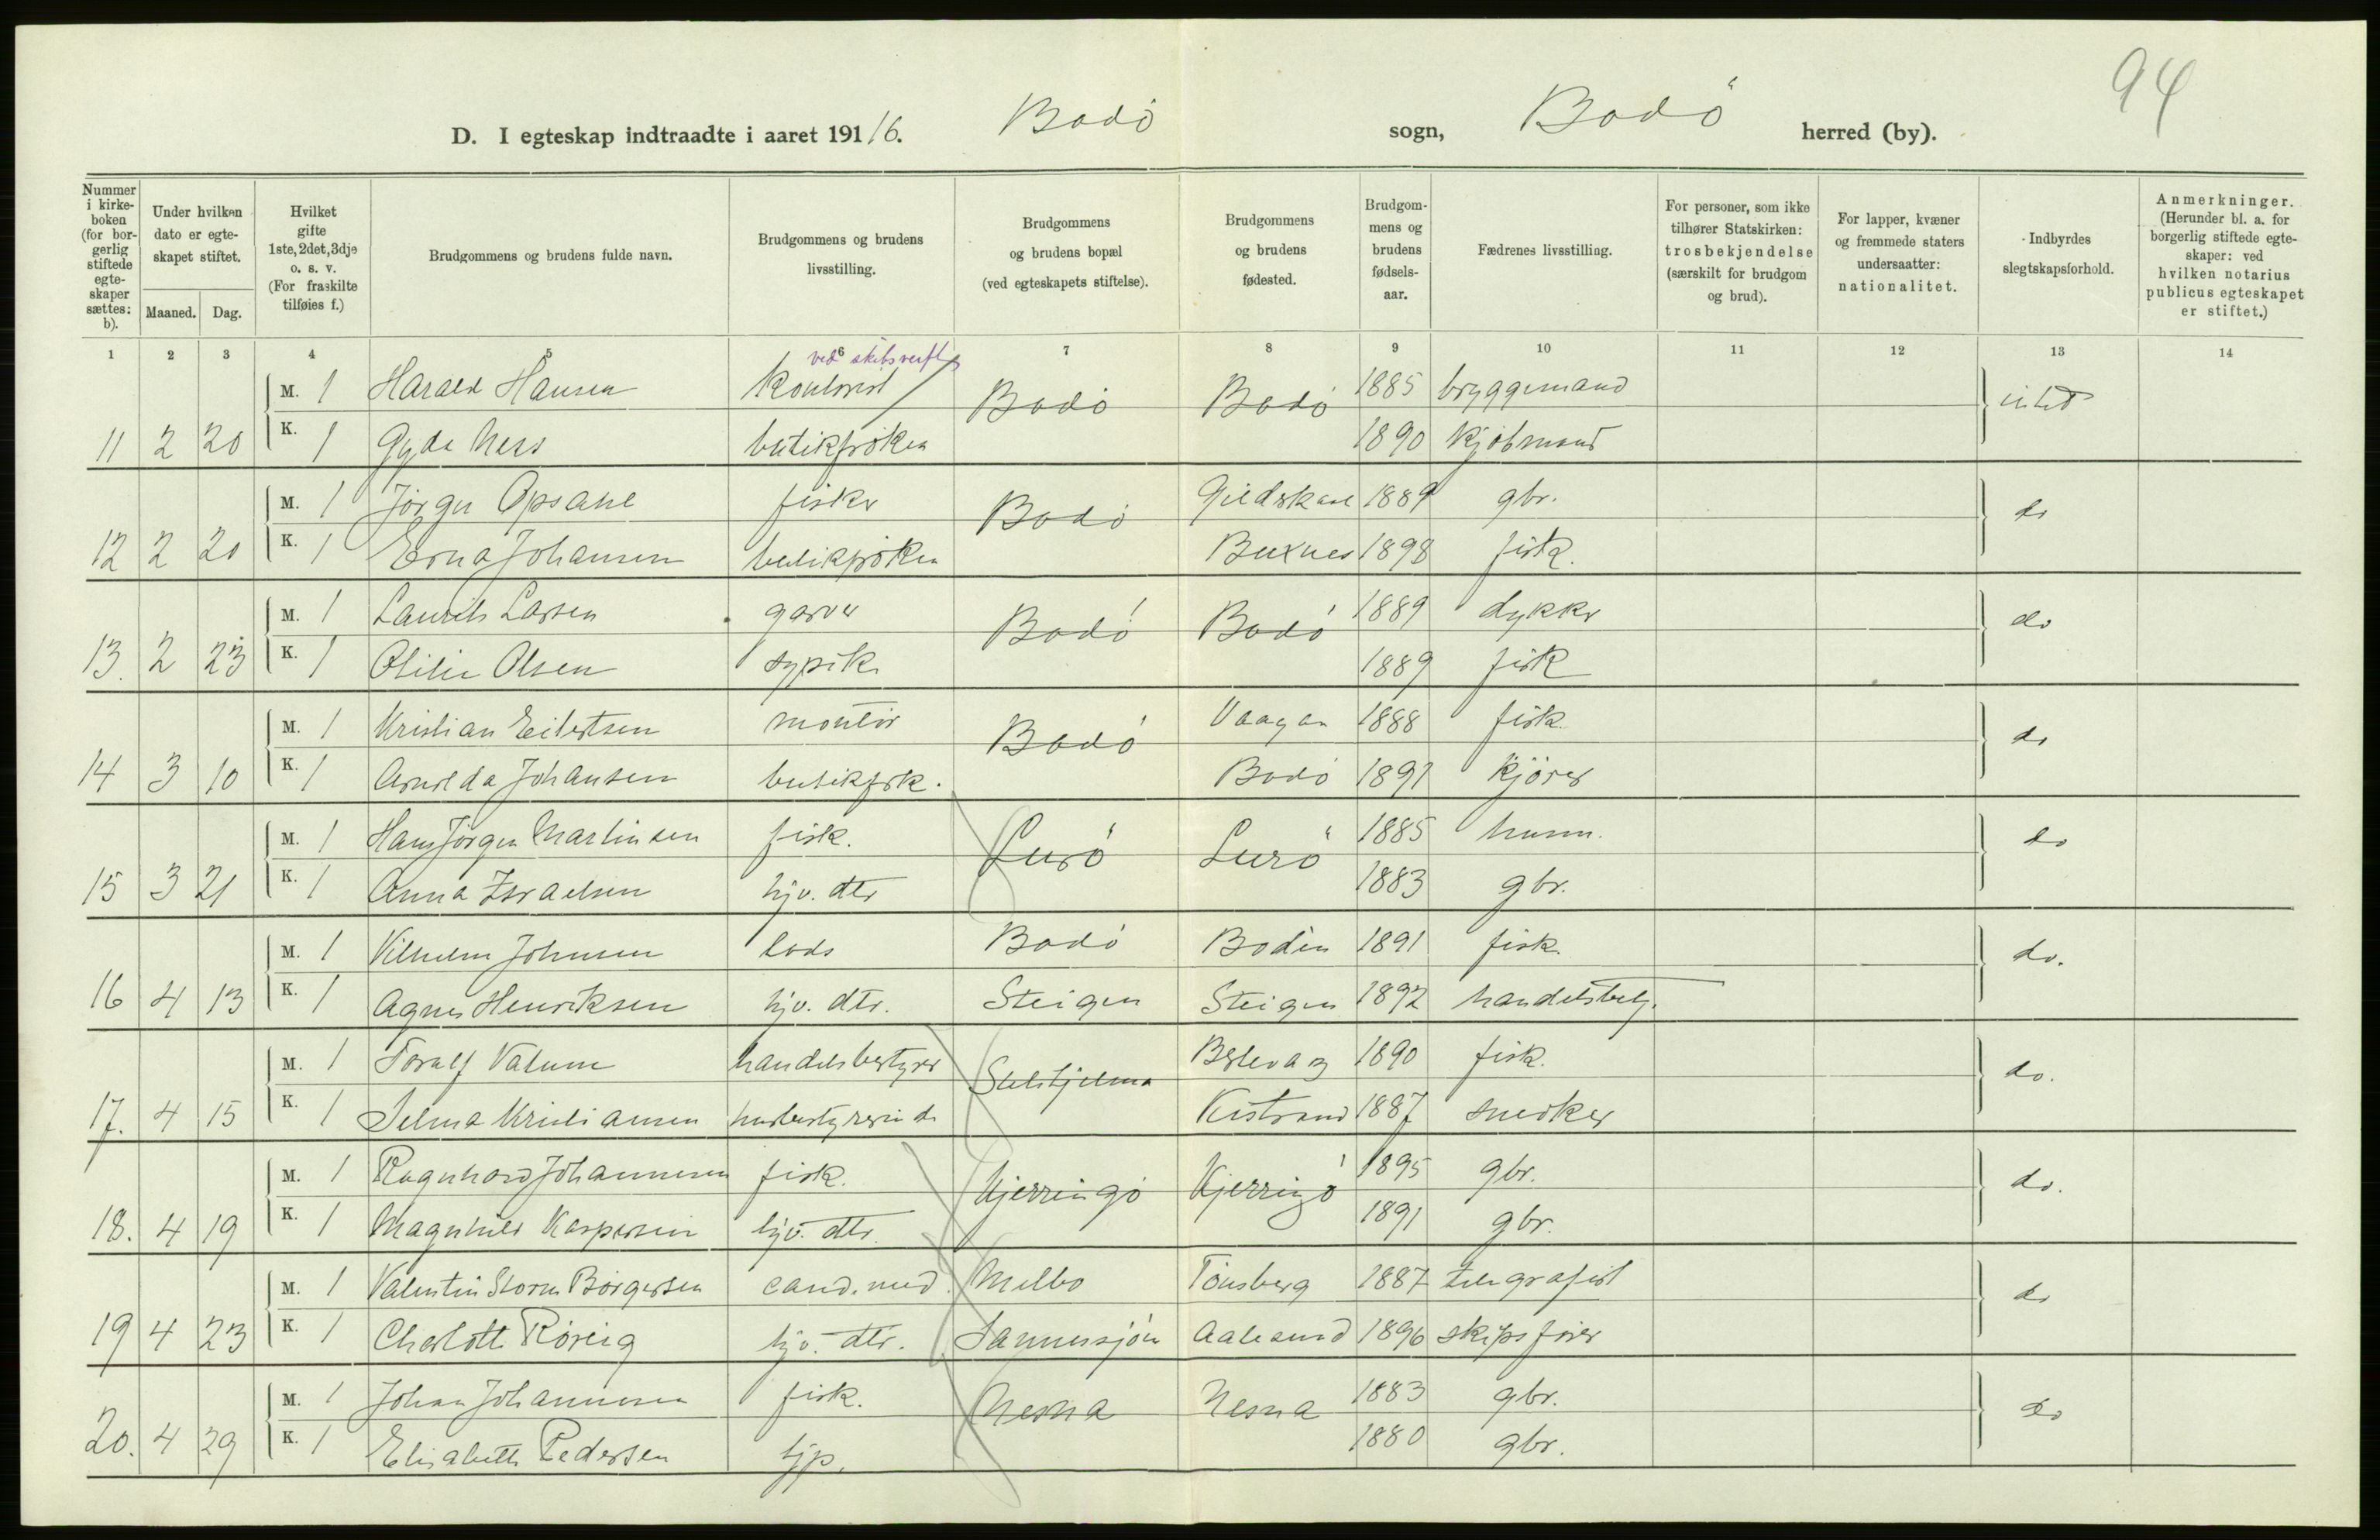 94
D. I egteskap indtraadte i aaret 1916. Bodö sogn, Bodö herred (by).
Nummer i kirkeboken (for borgerlig stiftede egteskaper sættes: b).
Under hvilken dato er egteskapet stiftet.
Maaned. Dag.
Hvilket gifte 1ste, 2det, 3dje o. s. v. (For fraskilte tilføies f.)
Brudgommens og brudens fulde navn.
Brudgommens og brudens livsstilling.
Brudgommens og brudens bopæl (ved egteskapets stiftelse).
Brudgommens og brudens fødested.
Brudgommens og brudens fødselsaar.
Fædrenes livsstilling.
For personer, som ikke tilhører Statskirken: trosbekjendelse (særskilt for brudgom og brud).
For lapper, kvæner og fremmede staters undersaatter: nationalitet.
Indbyrdes slegtskapsforhold.
Anmerkninger. (Herunder bl. a. for borgerlig stiftede egteskaper: ved hvilken notarius publicus egteskapet er stiftet.)
1 2 3 4 5 6 7 8 9 10 11 12 13 14
ved skibsverft
M. 1 Harald Hansen kontorist Bodö Bodö 1885 bryggemand intet
11 2 20 K. 1 Gyda Ness butikfröken 1890 kjöbmand
M. 1 Jörgen Opsane fisker Bodö Gildskaal 1889 gbr. do
12 2 20 K. 1 Erna Johansen butikfröken Buxnes 1898 fisk.
M. 1 Laurits Larsen garver Bodö Bodö 1889 dykker do
13. 2 23 K. 1 Otilie Olsen sypik. 1889 fisk
M. 1 Kristian Eilertsen montör Bodö Vaagan 1888 fisk. do
14 3 10 K. 1 Arnilda Johansen butikfrk. Bodö 1891 kjörer
M. 1 Hans Jörgen Martinsen fisk. Lurö Lurö 1885 husm. do
15 3 21 K. 1 Anna Israelsen hjv. dtr 1883 gbr.
M. 1 Vilhelm Johnsen lods Bodö Bodin 1891 fisk. do.
16 4 13 K. 1 Agnes Henriksen hjv. dtr. Steigen Steigen 1892 handelsbetj.
M. 1 Toralf Valum handelsbestyrer Sulitjelma Berlevag 1890 fisk. do.
17. 4 15 K. 1 Selma Kristiansen husbestyrerinde Kistrand 1887 snedker
M. 1 Ragnhard Johannesen fisk. Kjerringö Kjerringö 1895 gbr. do.
18. 4 19 K. 1 Magnhild Kaspersen hjv. dtr. 1891 gbr.
M. 1 Valentin Storm Börgersen cand. med. Melbo Tönsberg 1887 telegrafist do
19 4 23 K. 1 Charlotte Röreig hjv. dtr. Sannessjöen Aalesund 1896 skipsförer
M. 1 Johan Johannesen fisk. Nesna Nesna 1883 gbr. do
20. 4 29 K. 1 Elisabeth Pedersen tjp. 1880 gbr.